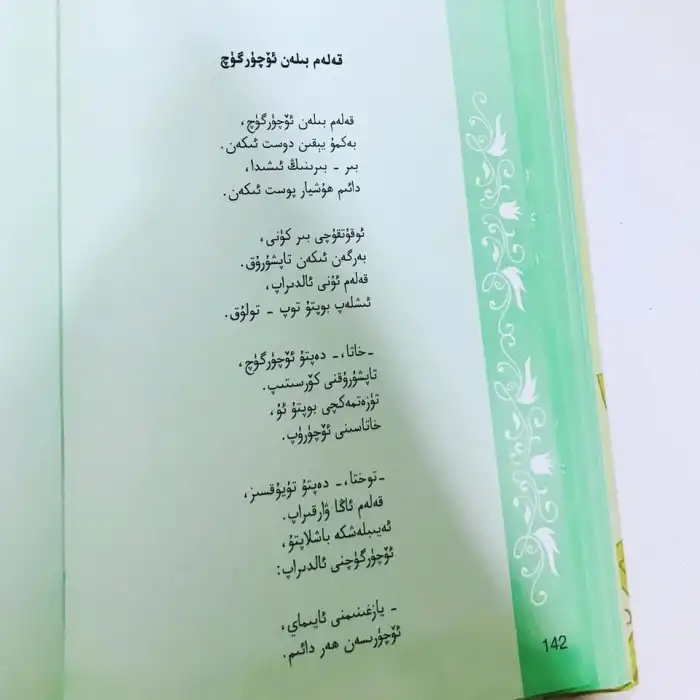 قەلەم بىلەن ئۆچۈرگۈچ
قەلەم بىلەن ئۆچۈرگۈچ،
بەكمۇ يېقىن دوست ئىكەن.
بىر - بىرىنىڭ ئىشىدا،
دائىم ھۇشيار پوست ئىكەن.
ئوقۇتقۇچى بىر كۈنى،
بەرگەن ئىكەن تاپشۇرۇق.
قەلەم ئۇنى ئالدىراپ،
ئىشلەپ بوپتۇ توپ - تولۇق.
-خاتا،- دەپتۇ ئۆچۈرگۈچ،
تاپشۇرۇقنى كۆرسىتىپ.
تۈزەتمەكچى بوپتۇ ئۇ،
خاتاسىنى ئۆچۈرۈپ.
-توختا،- دەپتۇ تۇيۇقسىز،
قەلەم ئاڭا ۋارقىراپ.
ئەيىبلەشكە باشلاپتۇ،
ئۆچۈرگۈچنى ئالدىراپ:
- يازغىنىمنى ئايىماي،
ئۆچۈرىسەن ھەر دائىم.
142